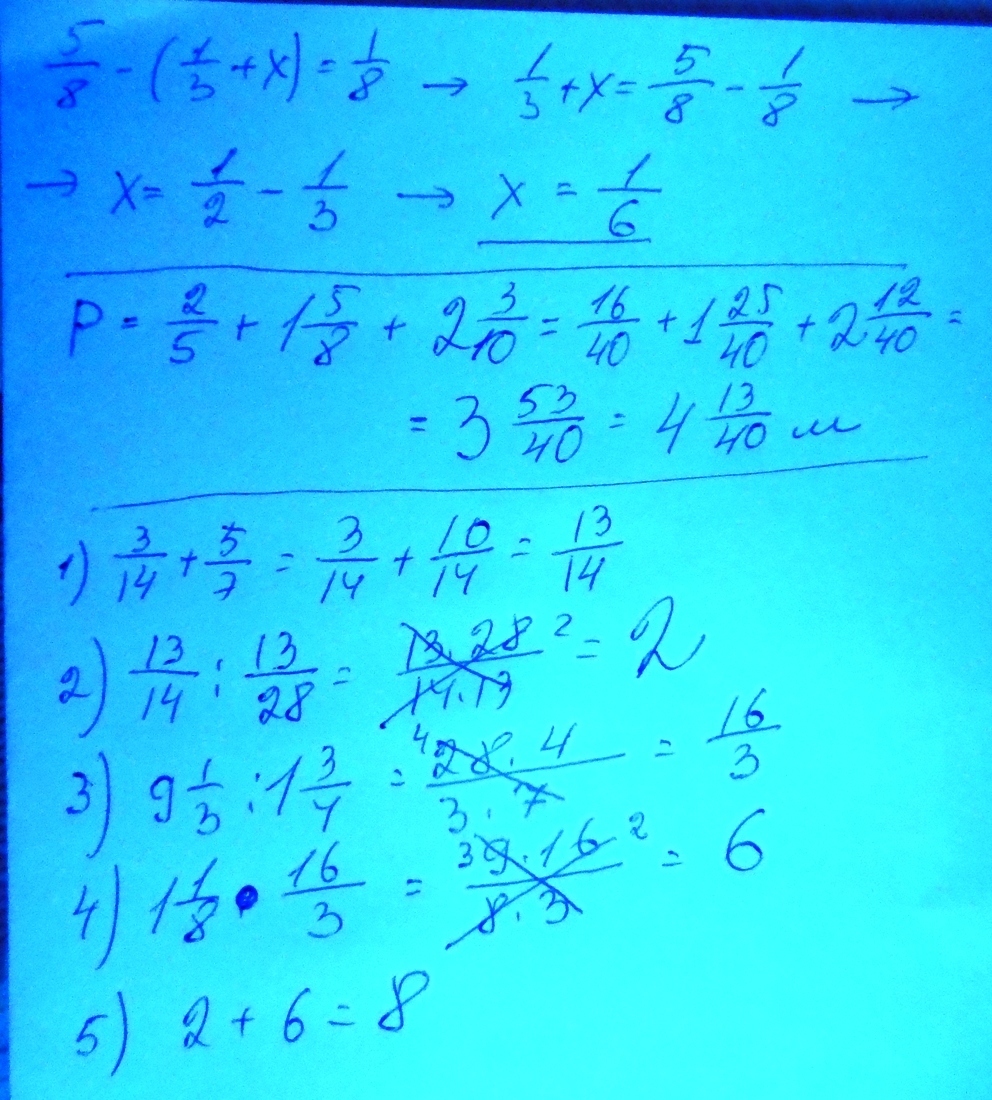 5/8 - (1/3 + x) = 1/8 → 1/3 + x = 5/8 - 1/8 →
→ x = 1/2 - 1/3 → x = 1/6
P = 2/5 + 1 5/8 + 2 3/10 = 16/40 + 1 25/40 + 2 12/40 =
= 3 53/40 = 4 13/40 м
1) 3/14 + 5/7 = 3/14 + 10/14 = 13/14
2) 13/14 : 13/28 = 13·28 2/14·13 = 2
3) 9 1/3 : 1 3/4 = 4 28·4/3·7 = 16/3
4) 1 1/8 • 16/3 = 3 9·16 2/8·3 = 6
5) 2 + 6 = 8